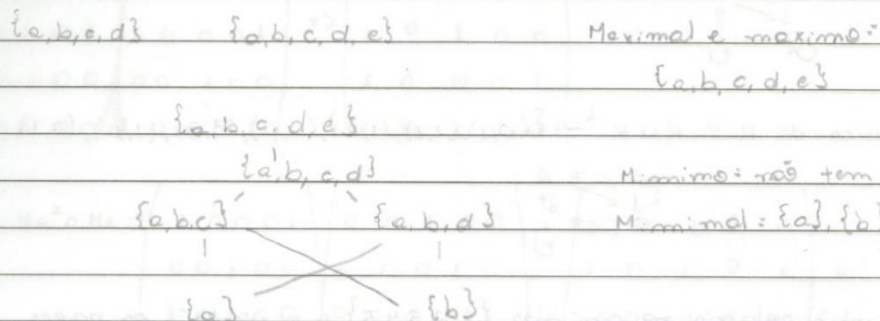 {a,b,c,d} {a,b,c,d,e} Maximal e maximo:
{a,b,c,d,e}
{a,b,c,d,e}
{a,b,c,d} Minimo: não tem
{a,b,c} {a,b,d} Minimal: {a},{b}
{a} {b}